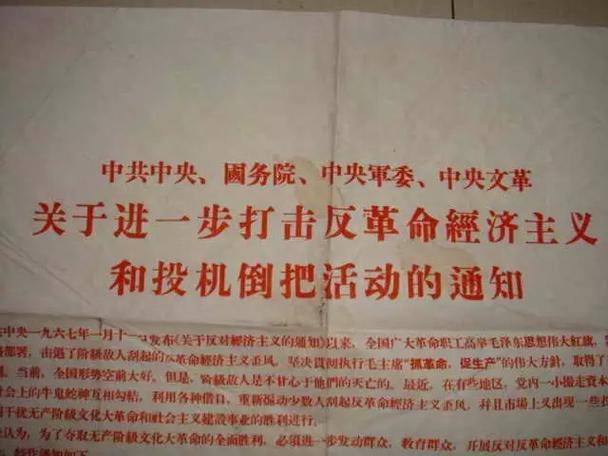 中共中央、國务院、中央軍委、中央文革
关于进一步打击反革命經济主义
和投机倒把活动的通知
中央一九六七年一月十一日发布《关于反对經济主义的通知》以来，全国广大革命职工高举毛泽东思想伟大紅旗，
部署，击退了阶級敌人刮起的反革命經济主义歪风，坚决貫彻执行毛主席“抓革命，促生产”的伟大方針，取得了
当前，全国形势空前大好。但是，阶級敌人是不甘心于他們的灭亡的。最近，在有些地区，党内一小撮走資本
社会上的牛鬼蛇神互相勾結，利用各种借口，重新煽动少数人刮起反革命經济主义歪风，幷且市場上又出现一些投
干扰无产阶級文化大革命和社会主义建設事业的胜利进行。
认为，为了夺取无产阶級文化大革命的全面胜利，必須进一步发动群众，教育群众，开展反对反革命經济主义和
特作通知如下